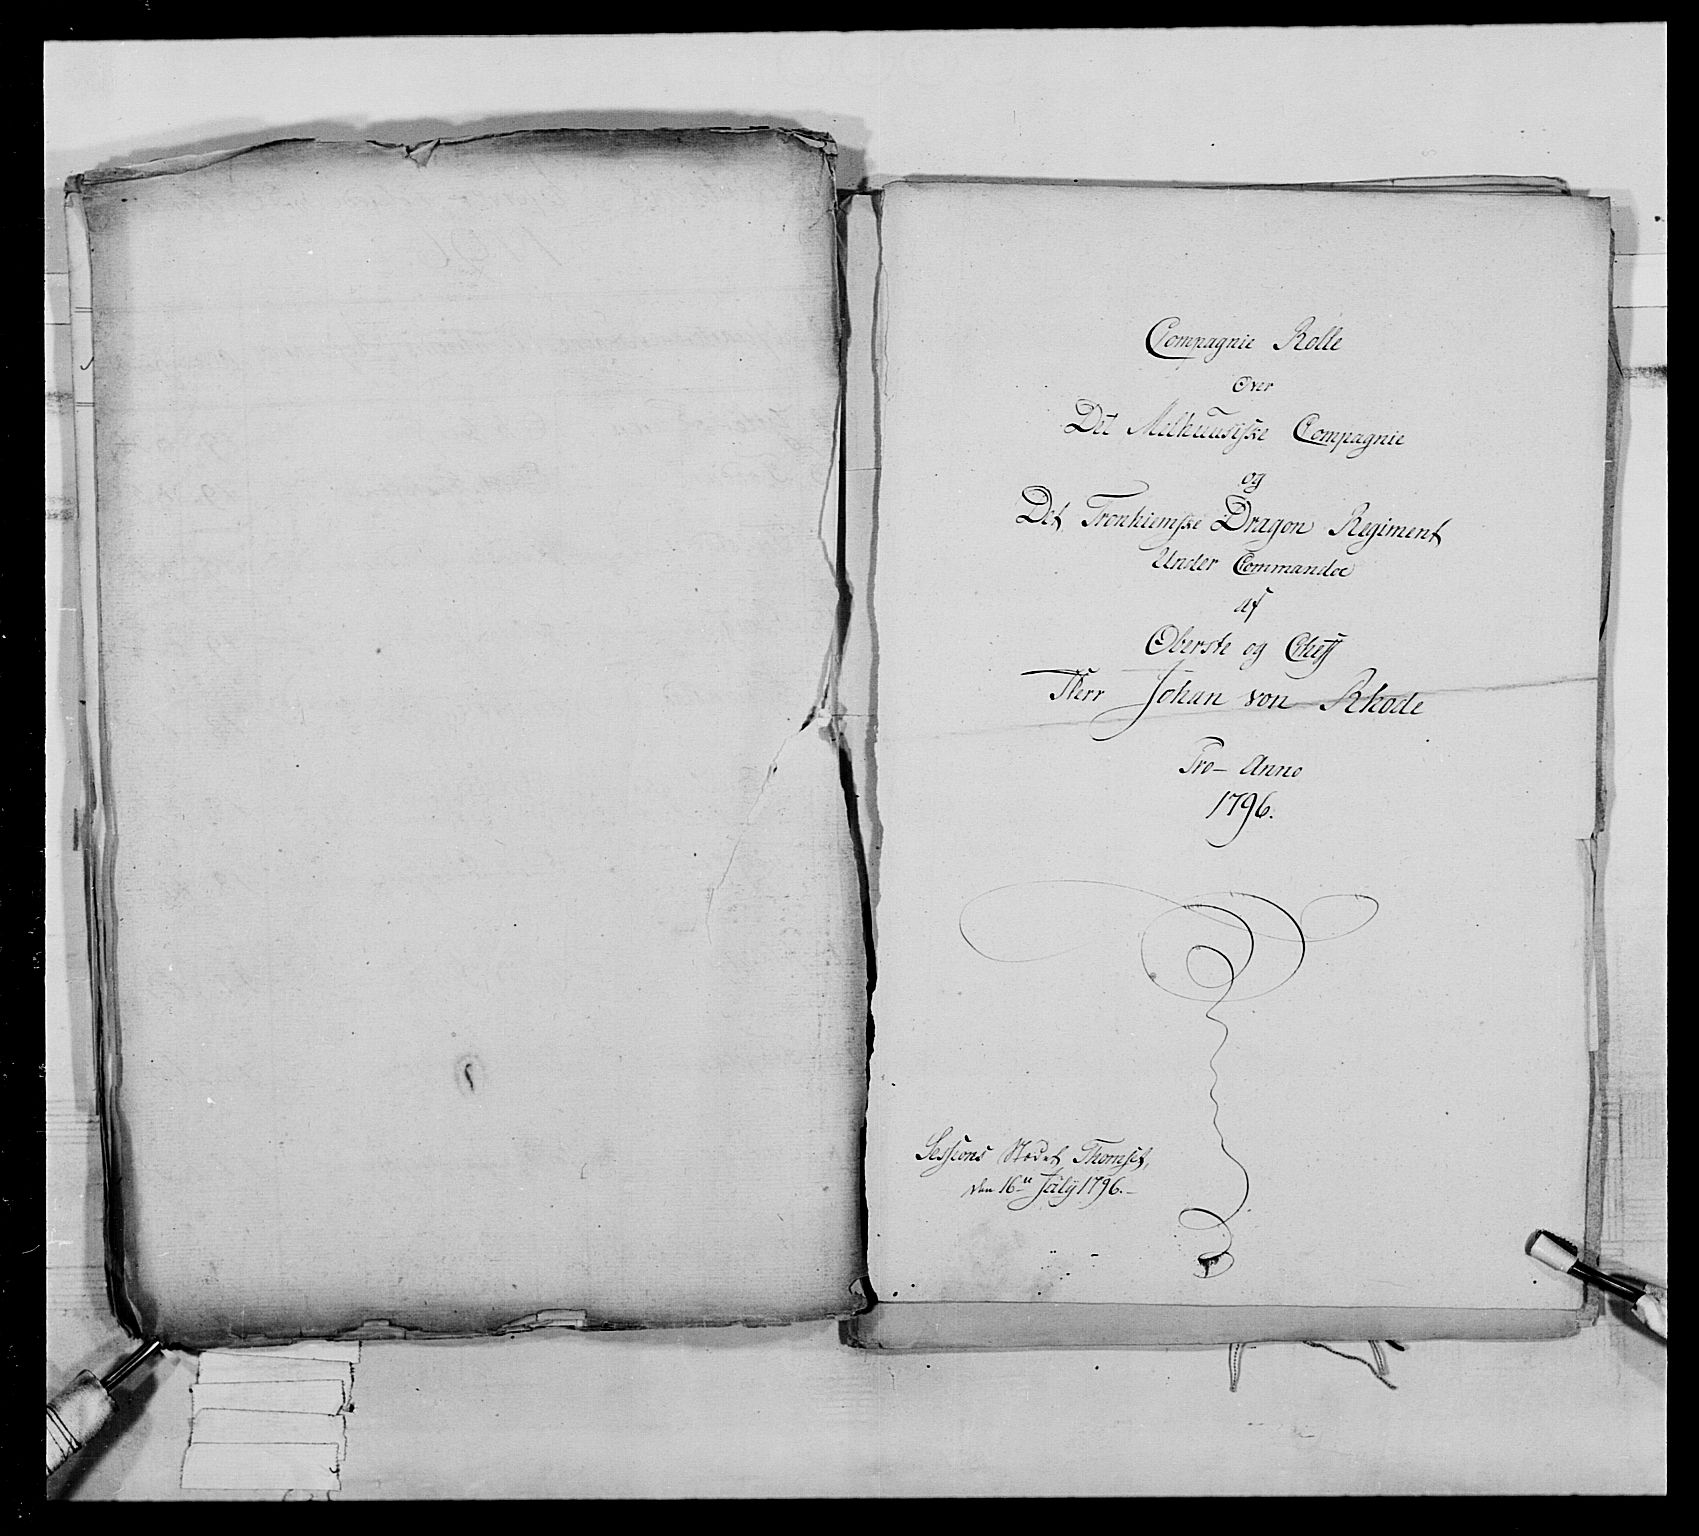 Compagnie Rolle
Over
Det Melhuusiske Compagnie
og
Det Tronhiemske Dragon Regiment
Under Commandoe
af
Oberste og Cheff
Herr Johan von Rhode
Pro- Anno
1796.
Sessions Stedet Thomset,
den 16de July 1796.-